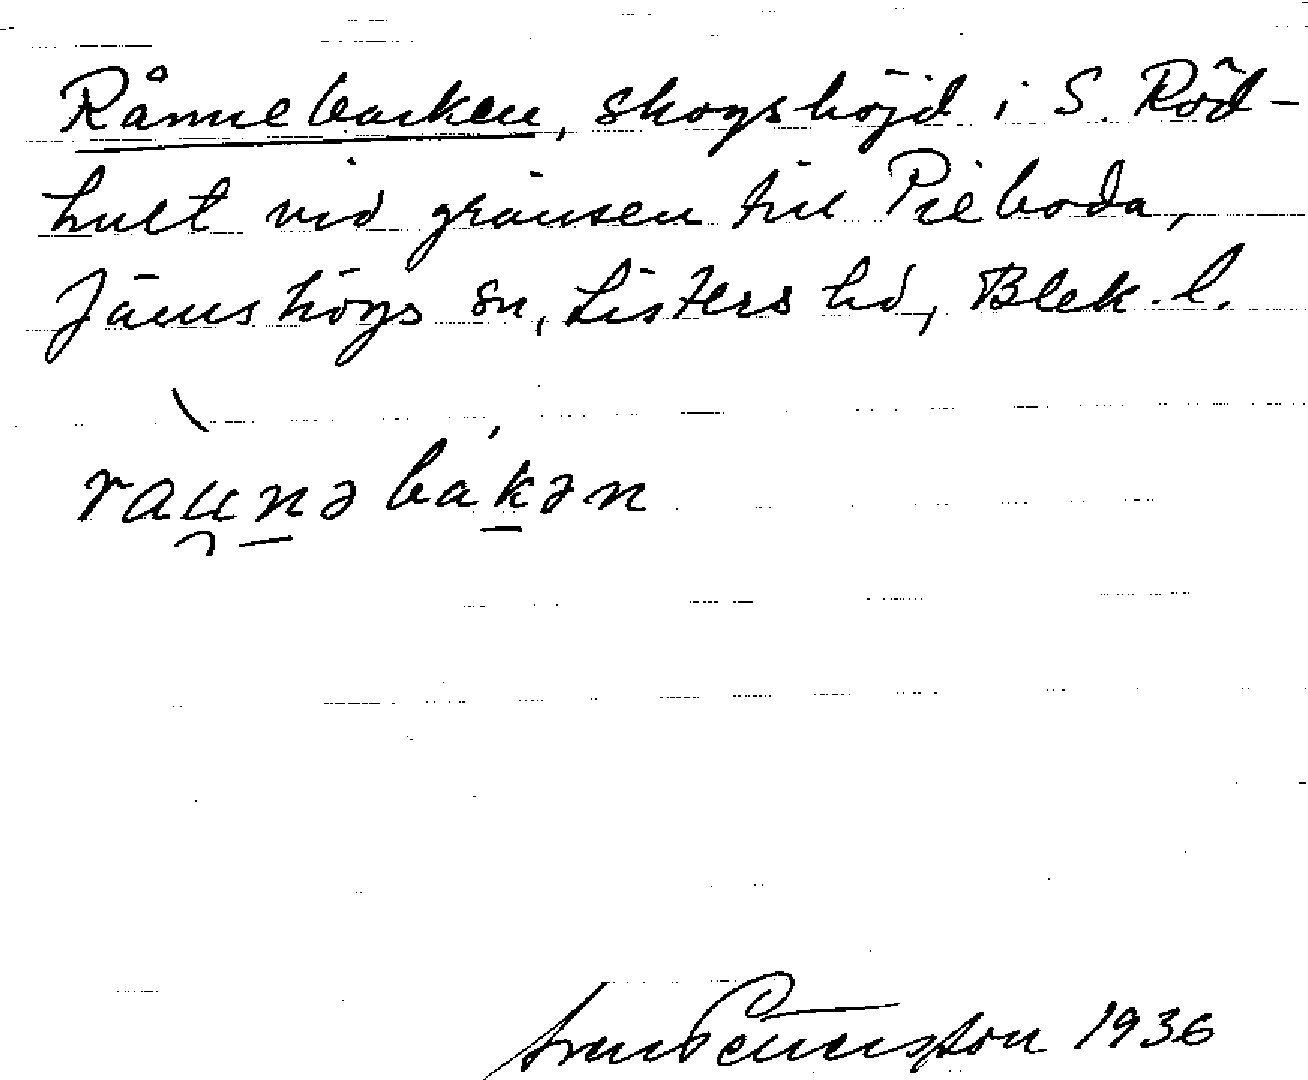 Rånnebacken, skogshöjd i S. Röd-
hult vid gränsen till Pieboda,
Jämshögs sn, Listers hd, Blek. l.
rau̯nəbakən
1936